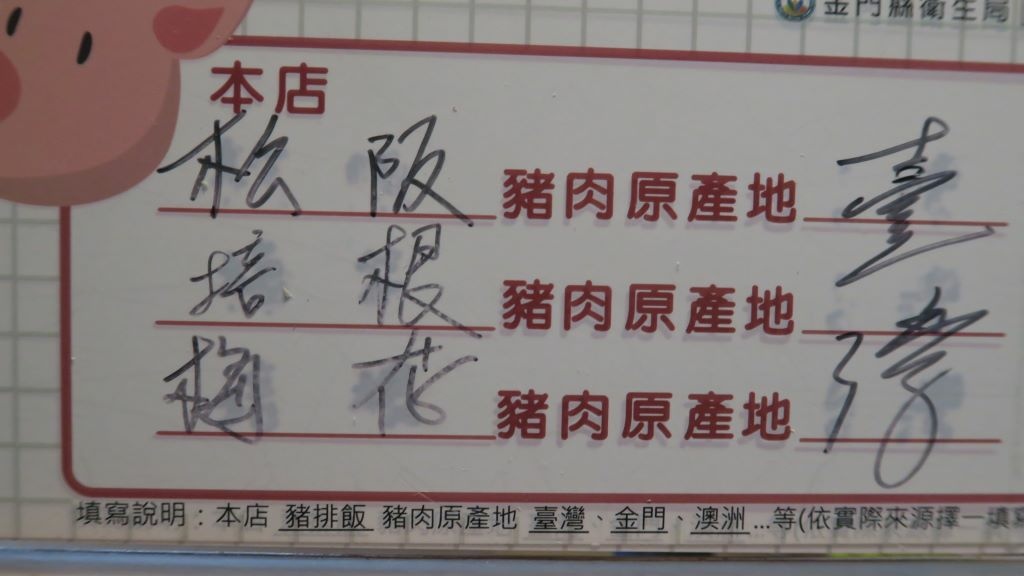 金門縣衛生局
本店
松阪 豬肉原產地 臺
培根 豬肉原產地
梅花 豬肉原產地 灣
填寫說明：本店 豬排飯 豬肉原產地 臺灣、金門、澳洲...等(依實際來源擇一填寫